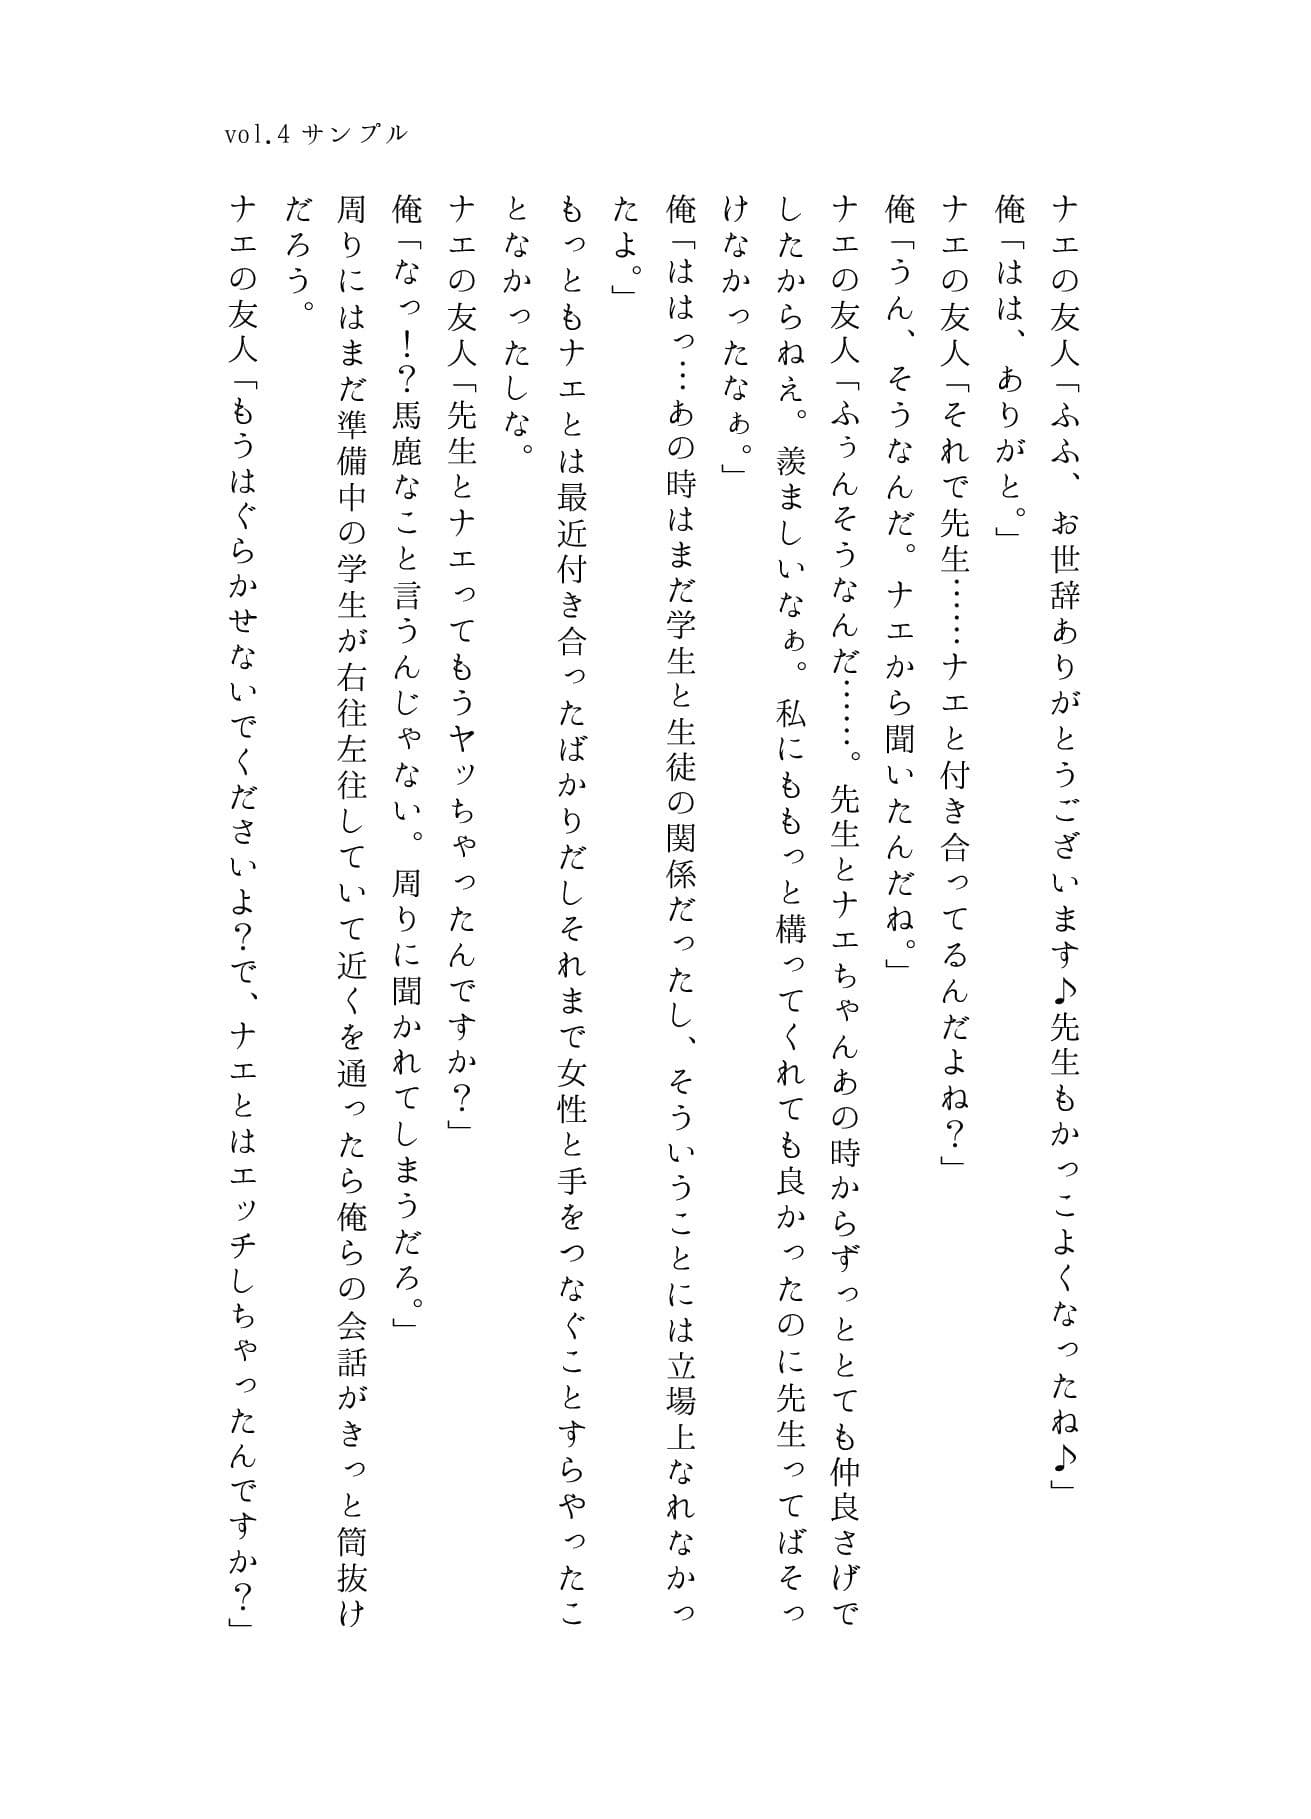 vol.4 サンプル
ナエの友人「ふふ、お世辞ありがとうございます♪先生もかっこよくなったね♪」
俺「はは、ありがと。」
ナエの友人「それで先生……ナエと付き合ってるんだよね？」
俺「うん、そうなんだ。ナエから聞いたんだね。」
ナエの友人「ふぅんそうなんだ……。先生とナエちゃんあの時からずっととても仲良さげで
したからねえ。羨ましいなぁ。私にももっと構ってくれても良かったのに先生ってばそっ
けなかったなぁ。」
俺「ははっ…あの時はまだ学生と生徒の関係だったし、そういうことには立場上なれなかっ
たよ。」
もっともナエとは最近付き合ったばかりだしそれまで女性と手をつなぐことすらやったこ
となかったしな。
ナエの友人「先生とナエってもうヤッちゃったんですか？」
俺「なっ！？馬鹿なこと言うんじゃない。周りに聞かれてしまうだろ。」
周りにはまだ準備中の学生が右往左往していて近くを通ったら俺らの会話がきっと筒抜け
だろう。
ナエの友人「もうはぐらかせないでくださいよ？で、ナエとはエッチしちゃったんですか？」